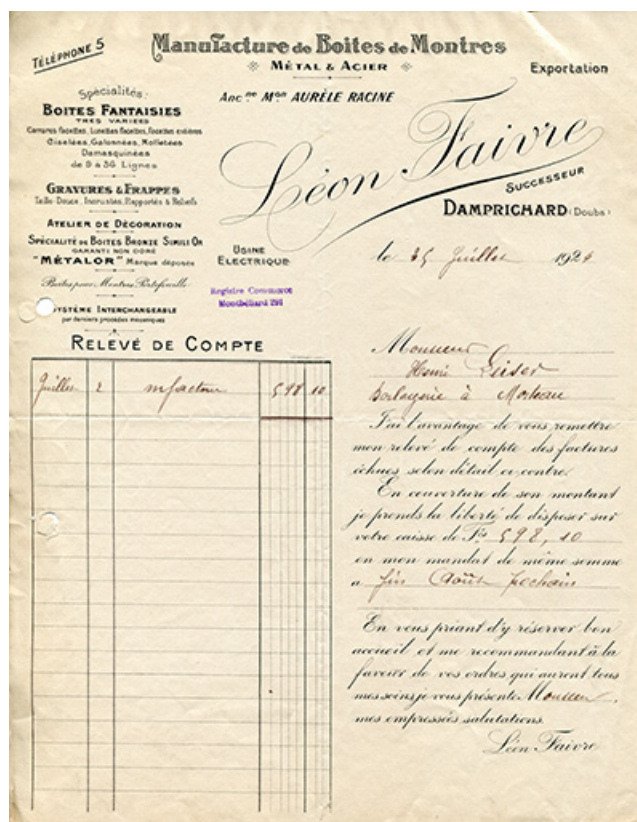 TÉLÉPHONE 5
Manufacture de Boites de Montres
MÉTAL & ACIER
Exportation
Ancne Mon AURÈLE RACINE
Léon Faivre
SUCCESSEUR
DAMPRICHARD (Doubs)
Spécialités:
BOITES FANTAISIES
TRÈS VARIÉES
Carrures facettes, Lunettes facettes, Facettes entières
Ciselées, Galonnées, Molletées
Damasquinées
de 9 à 36 Lignes
GRAVURES & FRAPPES
Taille-Douce, Incrustés, Rapportés & Reliefs
ATELIER DE DÉCORATION
SPÉCIALITÉ DE BOITES BRONZE SIMILI OR
GARANTI NON DORÉ
"MÉTALOR" Marque déposée
Boites pour Montres Portefeuille
SYSTÈME INTERCHANGEABLE
par derniers procédés mécaniques
USINE
ELECTRIQUE
Registre Commerce
Montbéliard 291
le 25 Juillet 1924
RELEVÉ DE COMPTE
Juillet 2 m/facture 598 10
Monsieur
Henri
à Morteau
J'ai l'avantage de vous remettre
mon relevé de compte des factures
échues selon détail ci contre.
En couverture de son montant
je prends la liberté de disposer sur
votre caisse de Frs 598,10
en mon mandat de même somme
a fin Août prochain
En vous priant d'y réserver bon
accueil et me recommandant à la
faveur de vos ordres qui auront tous
mes soins, je vous présente Monsieur,
mes empressées salutations.
Léon Faivre